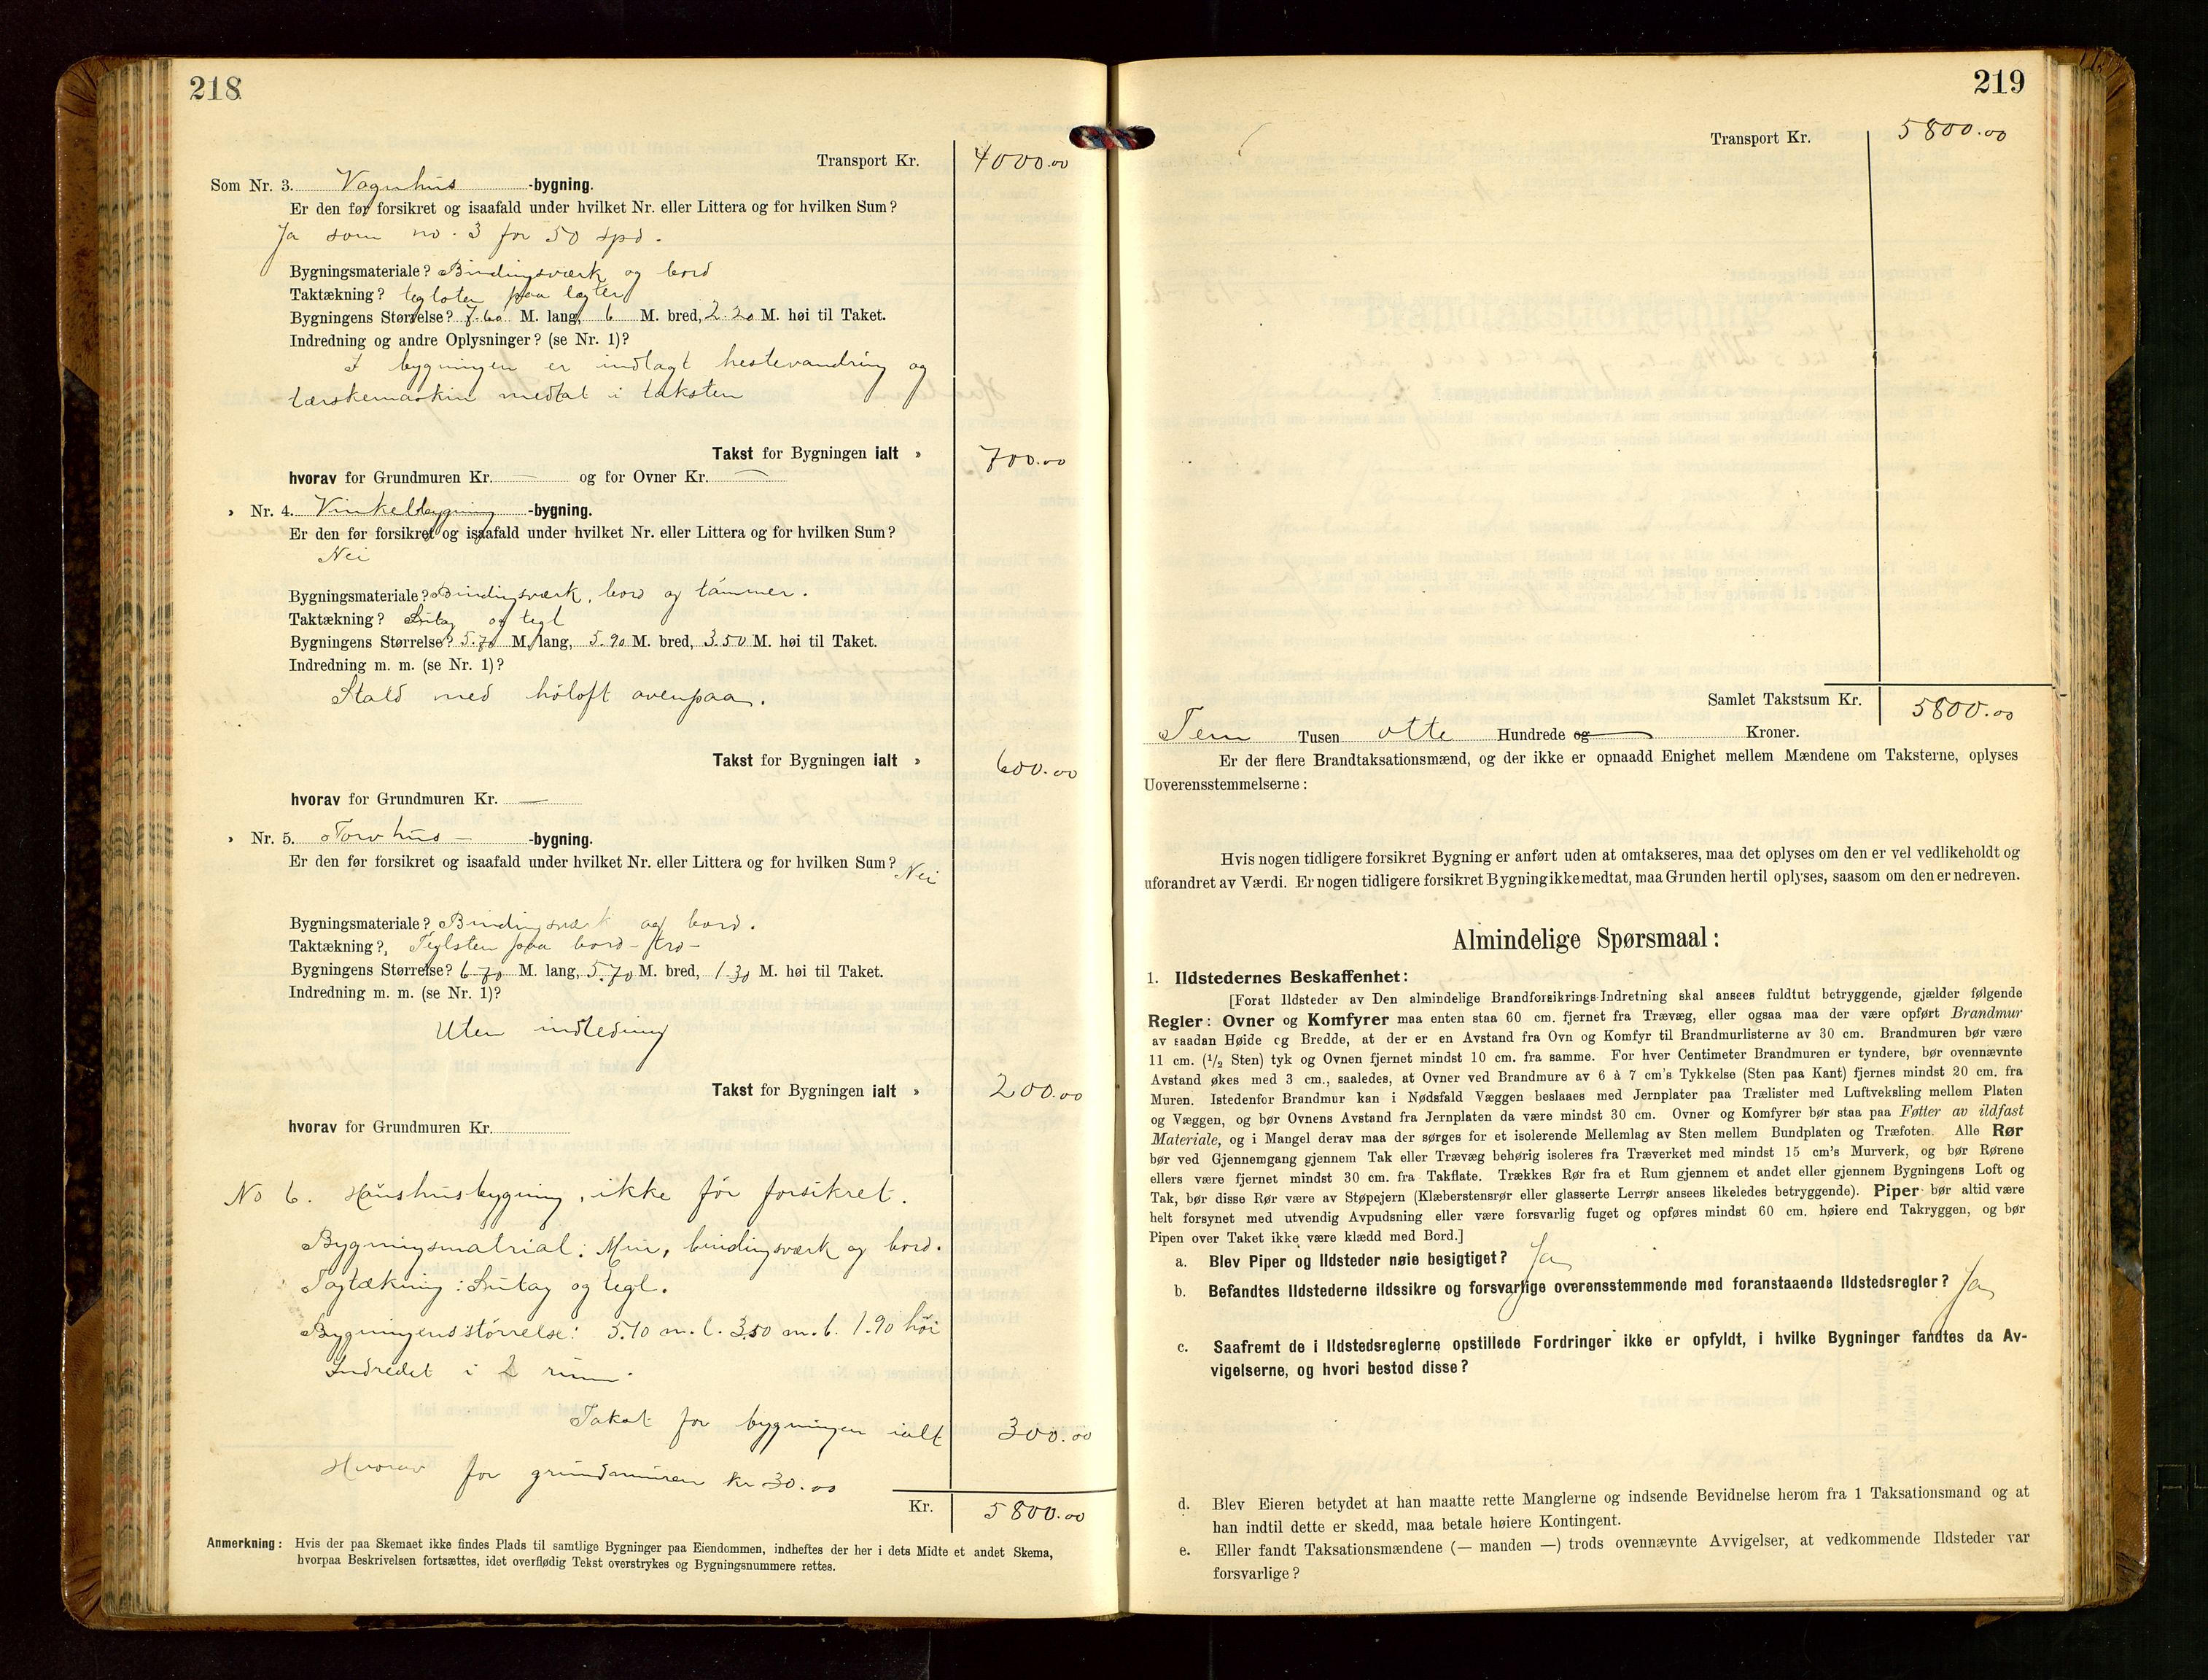 218
Transport Kr. 4000.00
Som Nr. 3. Vognhus -bygning.
Er den før forsikret og isaafald under hvilket Nr. eller Littera og for hvilken Sum?
Ja som no. 3 for 50 spd.
Bygningsmateriale? Bindingsværk og bord
Taktækning? teglsten paa lægter
Bygningens Størrelse? 7.60 M. lang, 6 M. bred, 2.20 M. høi til Taket.
Indredning og andre Oplysninger? (se Nr. 1)?
I bygningen er indlagt hestevandring og
tærskemaskin medtat i taksten
Takst for Bygningen ialt » 700.00
hvorav for Grundmuren Kr. — og for Ovner Kr. —
» Nr. 4. Vinkelbygning -bygning.
Er den før forsikret og isaafald under hvilket Nr. eller Littera og for hvilken Sum?
Nei
Bygningsmateriale? Bindingsværk, bord og tømmer.
Taktækning? og tegl
Bygningens Størrelse? 5.70 M. lang, 5.90 M. bred, 3.50 M. høi til Taket.
Indredning m. m. (se Nr. 1)?
Stald med höloft ovenpaa.
Takst for Bygningen ialt » 600.00
hvorav for Grundmuren Kr. —
» Nr. 5. Torvhus — -bygning.
Er den før forsikret og isaafald under hvilket Nr. eller Littera og for hvilken Sum? Nei
Bygningsmateriale? Bindingsværk og bord.
Taktækning? Teglsten paa bord-tro-
Bygningens Størrelse? 6.70 M. lang, 5.70 M. bred, 1.30 M. høi til Taket.
Indredning m. m. (se Nr. 1)?
Uten indredning
Takst for Bygningen ialt » 200.00
hvorav for Grundmuren Kr.
No 6. Hønshusbygning, ikke för forsikret.
Bygningsmatrial: Mur, bindingsværk og bord.
Tagtækning: og tegl.
Bygningens störrelse: 5.10 m. l. 3.50 m. b. 1.90 höi
Indredet i 2 rum.
Takst for bygningen ialt 300.00
Hvorav for grundmuren kr 30.00
Kr. 5800.00
Anmerkning: Hvis der paa Skemaet ikke findes Plads til samtlige Bygninger paa Eiendommen, indheftes der her i dets Midte et andet Skema,
hvorpaa Beskrivelsen fortsættes, idet overflødig Tekst overstrykes og Bygningsnummere rettes.
219
Transport Kr. 5800.00
Samlet Takstsum Kr. 5800.00
Fem Tusen otte Hundrede og Kroner.
Er der flere Brandtaksationsmænd, og der ikke er opnaadd Enighet mellem Mændene om Taksterne, oplyses
Uoverensstemmelserne:
Hvis nogen tidligere forsikret Bygning er anført uden at omtakseres, maa det oplyses om den er vel vedlikeholdt og
uforandret av Værdi. Er nogen tidligere forsikret Bygning ikke medtat, maa Grunden hertil oplyses, saasom om den er nedreven.
Almindelige Spørsmaal:
1. Ildstedernes Beskaffenhet:
[Forat Ildsteder av Den almindelige Brandforsikrings-Indretning skal ansees fuldtut betryggende, gjælder følgende
Regler: Ovner og Komfyrer maa enten staa 60 cm. fjernet fra Trævæg, eller ogsaa maa der være opført Brandmur
av saadan Høide og Bredde, at der er en Avstand fra Ovn og Komfyr til Brandmurlisterne av 30 cm. Brandmuren bør være
11 cm. (1/2 Sten) tyk og Ovnen fjernet mindst 10 cm. fra samme. For hver Centimeter Brandmuren er tyndere, bør ovennævnte
Avstand økes med 3 cm., saaledes, at Ovner ved Brandmure av 6 à 7 cm's Tykkelse (Sten paa Kant) fjernes mindst 20 cm. fra
Muren. Istedenfor Brandmur kan i Nødsfald Væggen beslaaes med Jernplater paa Trælister med Luftveksling mellem Platen
og Væggen, og bør Ovnens Avstand fra Jernplaten da være mindst 30 cm. Ovner og Komfyrer bør staa paa Føtter av ildfast
Materiale, og i Mangel derav maa der sørges for et isolerende Mellemlag av Sten mellem Bundplaten og Træfoten. Alle Rør
bør ved Gjennemgang gjennem Tak eller Trævæg behørig isoleres fra Træverket med mindst 15 cm's Murverk, og bør Rørene
ellers være fjernet mindst 30 cm. fra Takflate. Trækkes Rør fra et Rum gjennem et andet eller gjennem Bygningens Loft og
Tak, bør disse Rør være av Støpejern (Klæberstensrør eller glasserte Lerrør ansees likeledes betryggende). Piper bør altid være
helt forsynet med utvendig Avpudsning eller være forsvarlig fuget og opføres mindst 60 cm. høiere end Takryggen, og bør
Pipen over Taket ikke være klædd med Bord.]
a. Blev Piper og Ildsteder nøie besigtiget? Ja
b. Befandtes Ildstederne ildssikre og forsvarlige overensstemmende med foranstaaende Ildstedsregler? Ja
c. Saafremt de i Ildstedsreglerne opstillede Fordringer ikke er opfyldt, i hvilke Bygninger fandtes da Av-
vigelserne, og hvori bestod disse?
d. Blev Eieren betydet at han maatte rette Manglerne og indsende Bevidnelse herom fra 1 Taksationsmand og at
han indtil dette er skedd, maa betale høiere Kontingent.
e. Eller fandt Taksationsmændene (— manden —) trods ovennævnte Avvigelser, at vedkommende Ildsteder var
forsvarlige?